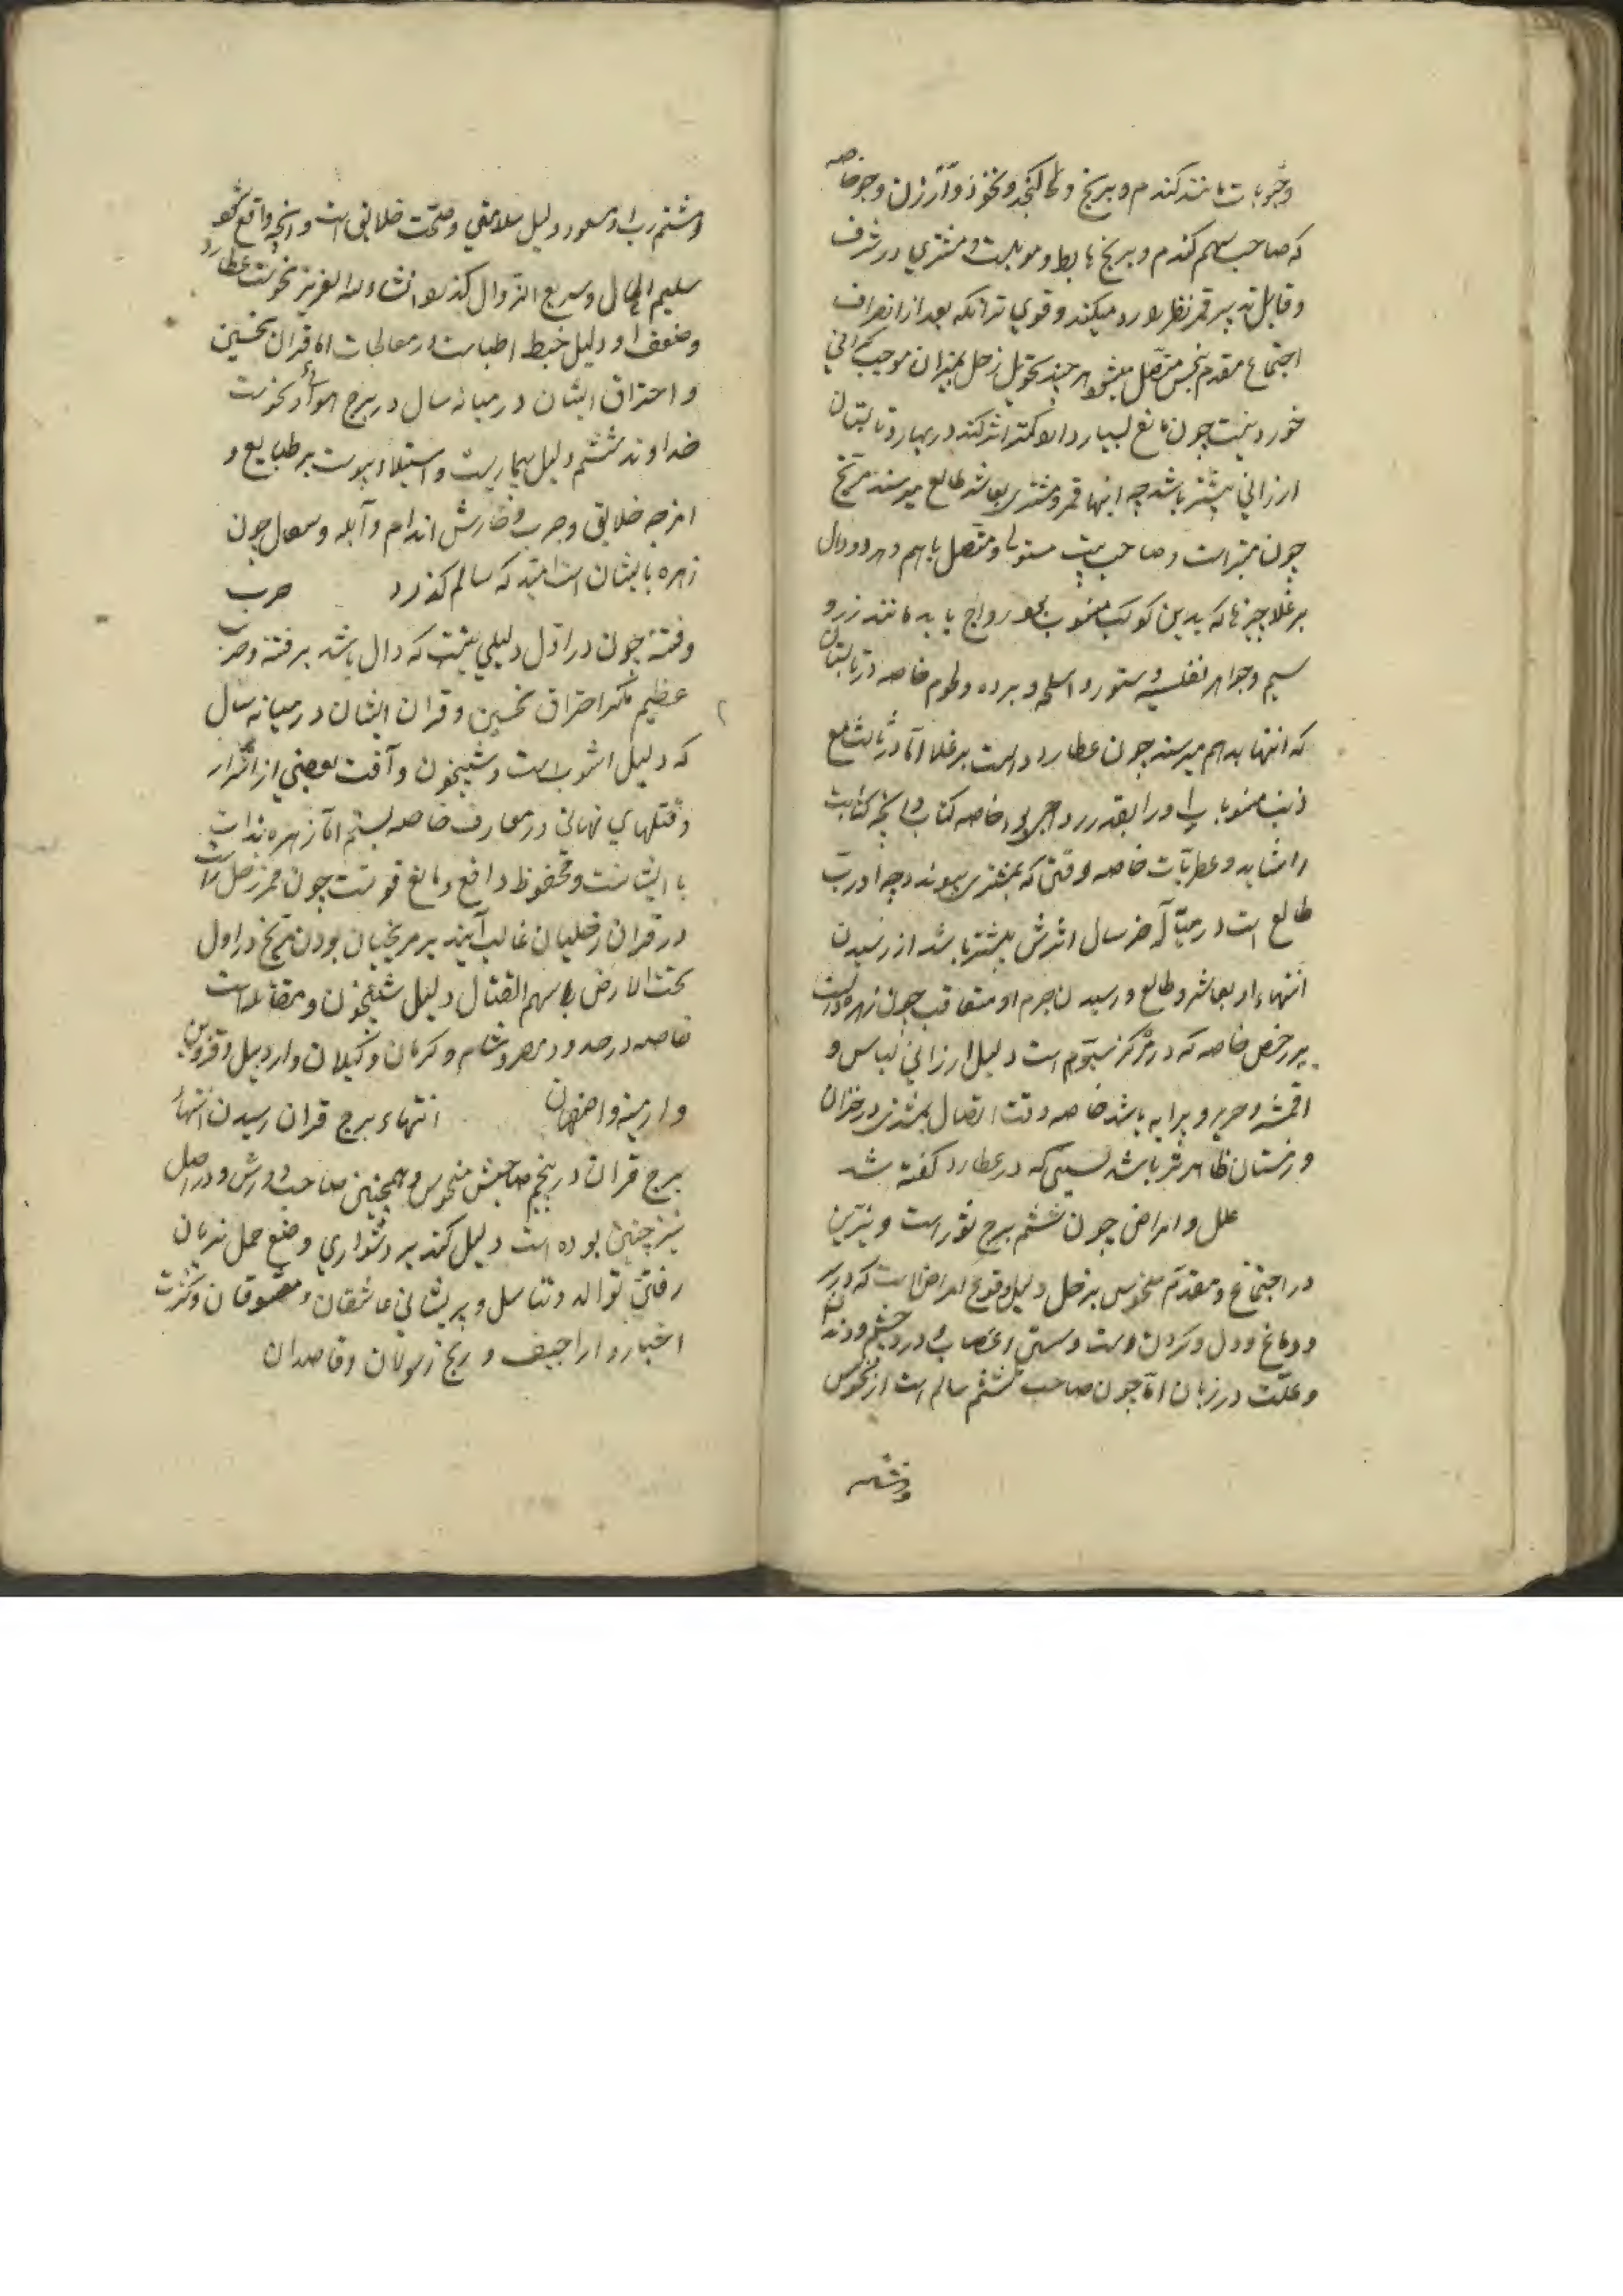 وحبوبات مانند گندم و برنج و کنجد و نخود و ارزن و جو خاصه
که صاحب سهم گندم و برنج هابط و مشتری در شرف
و قابل تدبیر قمر نظر او رد میکند و قوی تر آنکه بعد از انصراف
اجتماع مقدم بنحس متصل میشود هر چند تحویل زحل بمیزان موجب گرانی
خوردنیست چون مانع بسیار دارد کمتر اثر کند در بهار و تابستان
ارزانی بیشتر باشد چه انتها قمر و مشتری بعاشر طالع میرسند مریخ
چون است و صاحب بیت مستولی و متصل باهم و هر دو دال
بر غلا چیزها که بدین کوکب منسوب بود رواج یابد مانند زر و
سیم و جواهر نفیسه و ستور و اسلحه و برده و لحوم خاصه در تابستان
که انتها بدهم میرسد چون عطارد دالست بر غلا اما در ثالث مع
ذنب منسوبات او را بقدر رواجی بود خاصه کتاب و آنچه کتابت
را شاید و عطریات خاصه وقتی که بمشتری پیوندد چه او رب
طالع است در آخر سال اثرش بیشتر باشد از رسیدن
انتهاء او بعاشر و طالع و رسیدن جرم او متعاقب چون زهره دالست
بر رخص خاصه که در مرکز سیوم است دلیل ارزانی لباس و
اقمشه و حریر و پیرایه باشد خاصه وقت اتصال بمشتری در خزان
و زمستان ظاهرتر باشد بسببی که در عطارد گفته شد
علل و امراض چون ششم برج ثور است و نیرین
در اجتماع مقدم منحوس بزحل دلیل وقوع امراض است که در سر
و دماغ و دل و گردن و سستی اعصاب و درد چشم و دندان
و علت در زبان اما چون صاحب ششم سالم است از نحوس
و ششم
و ششم رب او مسعود دلیل سلامتی و صحت خلایق است و آنچه واقع شود
سلیم الحال و سریع الزوال گذرد انشاء الله العزیز نحوست عطارد
و ضعف او دلیل خبط اطباست در معالجات اما قران نحسین
و احتراق ایشان در میانه سال در برج هوائی و نحوست
خداوند ششم دلیل بیماریست و استیلاء یبوست بر طبایع و
امزجه خلایق و جرب و خارش اندام و آبله و سعال چون
زهره با ایشان است امید که سالم گذرد حرب
و فتنه چون در اول دلیلی نیست که دال باشد بر فتنه و حرب
عظیم مگر احتراق نحسین و قران ایشان در میانه سال
که دلیل آشوبست و شبیخون و آفت بعضی از اشرار
و قتلهای نهانی در معارف خاصه اما زهره بذات
با ایشانست و محفوظ دافع و مانع قویست چون زحل راست
در قران زحلیان غالب آیند بر مریخیان بودن مریخ در اول
تحت الارض با سهم القتال دلیل شبیخون و مقاتله است
خاصه در حدود مصر و شام و کرمان و گیلان و اردبیل و قزوین
و ارمنیه و اصفهان انتهاء برج قران رسیدن انتهاء
برج قران در پنجم صاحبش منحوس و همچنین صاحب دورش و در اصل
نیز چنین بوده است دلیل کند بر دشواری وضع حمل زنان
توالد و تناسل و پریشانی عاشقان و معشوقان و کثرت
اخبار و اراجیف و رنج رسولان و قاصدان